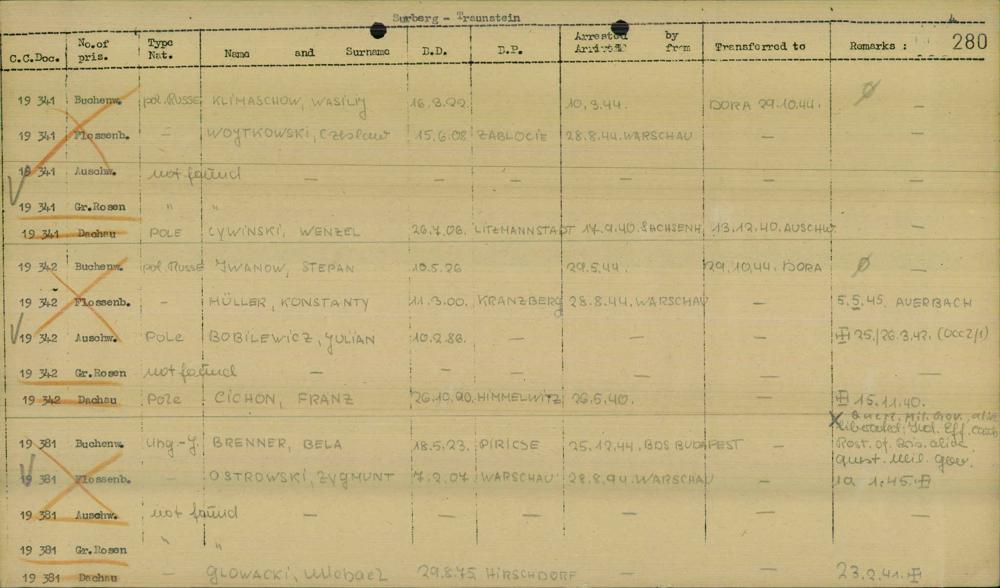 Surberg - Traunstein
280
C.C.Doc. No.of pris. Type Nat. Name and Surname D.D. D.P. Arrested Arrived by from Transferred to Remarks :
19 341 Buchenw. pol. Russe KLIMASCHOW, WASILIY 16.3.22. 10.3.44. DORA 29.10.44. Ø —
19 341 Flossenb. — WOYTKOWSKI, Czeslaw 15.6.08 ZABLOCIE 28.8.44. WARSCHAU — —
19 341 Auschw. not found — — — — — —
19 341 Gr.Rosen " "
19 341 Dachau POLE CYWINSKI, WENZEL 26.7.06. LITZMANNSTADT 17.9.40. SACHSENH. 13.12.40. AUSCHW.
19 342 Buchenw. pol. Russe IWANOW, STEPAN 10.5.26 29.5.44. 29.10.44. DORA Ø —
19 342 Flossenb. — MÜLLER, KONSTANTY 11.3.00. KRANZBERG 28.8.44. WARSCHAU — 5.5.45. AUERBACH
19 342 Auschw. POLE BOBILEWICZ, JULIAN 10.2.86. — — — 25./26.3.42. (OCC2/1)
19 342 Gr.Rosen not found — — — — — —
19 342 Dachau Pole CICHON, FRANZ 26.10.90. HIMMELWITZ 26.5.40. — 15.11.40.
19 381 Buchenw. Ung.-J. BRENNER, BELA 18.5.23. PIRICSE 25.12.44. BDS BUDAPEST —
19 381 Flossenb. — OSTROWSKI, ZYGMUNT 7.2.07. WARSCHAU 28.8.44. WARSCHAU — 1.45.
19 381 Auschw. not found — — — — —
19 381 Gr.Rosen " "
19 381 Dachau — GLOWACKI, Michael 29.8.75. HIRSCHDORF — — 23.2.41.